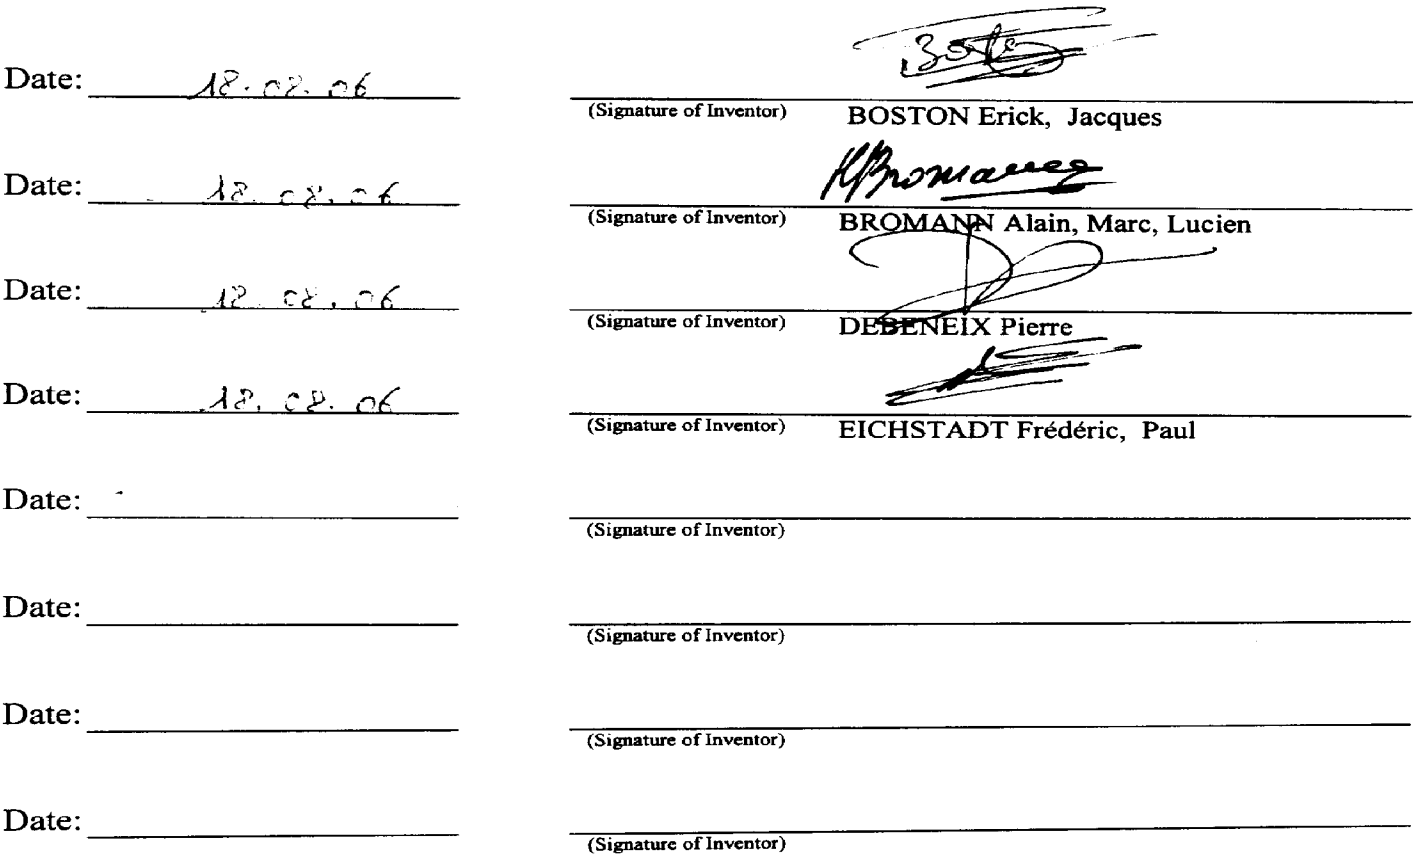 Date: 18.08.06
(Signature of Inventor) BOSTON Erick, Jacques
Date: 18.08.06
(Signature of Inventor) BROMANN Alain, Marc, Lucien
Date: 18.08.06
(Signature of Inventor) DEBENEIX Pierre
Date: 18.08.06
(Signature of Inventor) EICHSTADT Frédéric, Paul
Date:
(Signature of Inventor)
Date:
(Signature of Inventor)
Date:
(Signature of Inventor)
Date:
(Signature of Inventor)